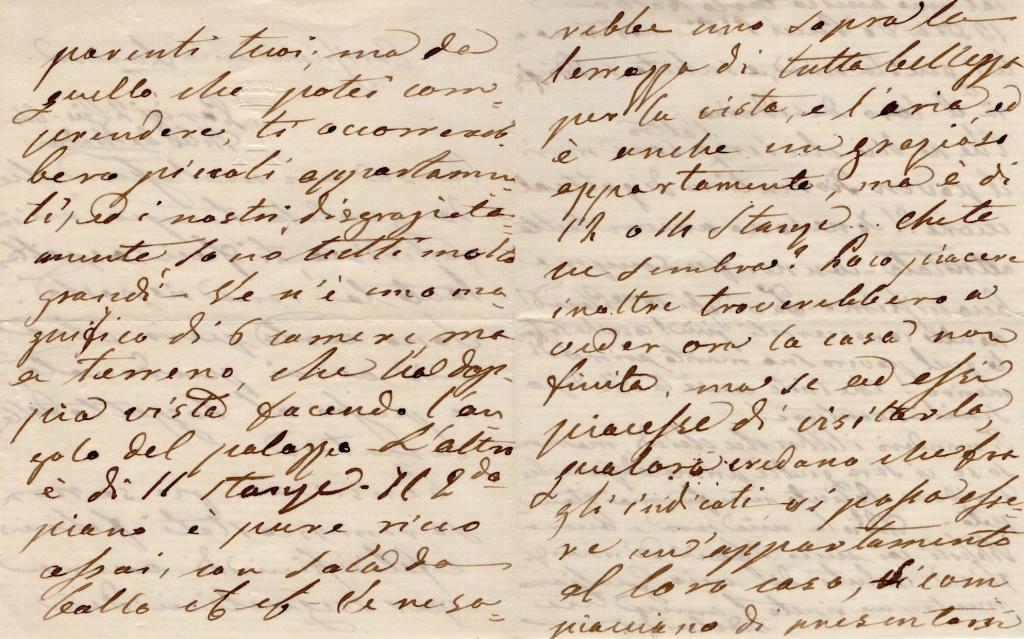 parenti tuoi; ma da
quello che potei com=
prendere, ti occorrereb=
bero piccoli appartamen=
ti, ed i nostri disgraziata=
mente sono tutti molto
grandi - Ve n'è uno ma=
gnifico di 6 camere, ma
a terreno, che ha dop=
pia vista facendo l'an
golo del palazzo. L'altro
è di 11 stanze. Il 2do
piano è pure ricco
assai, con sala da
ballo - Ve ne sa=
rebbe uno sopra la
terrazza di tutta bellezza
per la vista, e l'aria ed
è anche un grazioso
appartamento, ma è di
stanze... Che te
ne sembra? Poco piacere
inoltre troverebbero a
veder ora la casa non
finita, ma se ad essi
piacesse di visitarla,
qualora credano che fra
gli indicati vi possa esse=
re un'appartamento
al loro caso, si com
piacciano di presentarsi